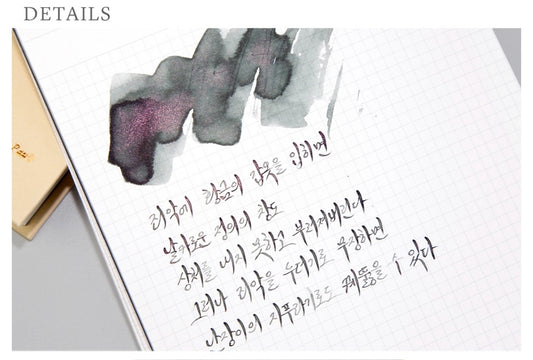 DETAILS
죄악에 황금의 갑옷을 입히면
날카로운 정의의 창도
상처를 내지 못하고 부러져버린다
그러나 죄악을 누더기로 무장하면
난장이의 지푸라기로도 꿰뚫을 수 있다